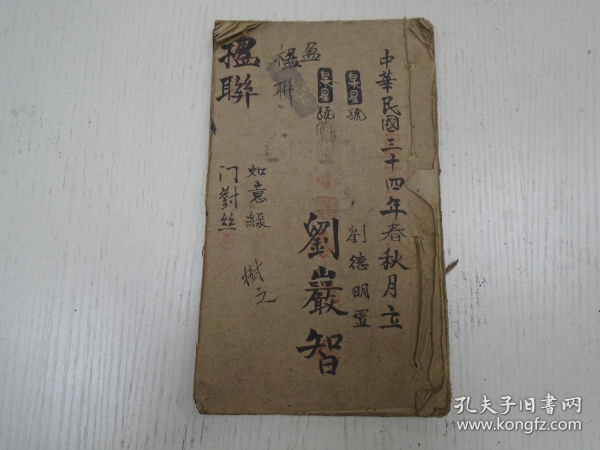 中華民國三十四年春秋月立
劉德明置
劉巖智
盈
楹聯
楹聯
如意綠
门對丝
樹立
孔夫子旧书网
www.kongfz.com